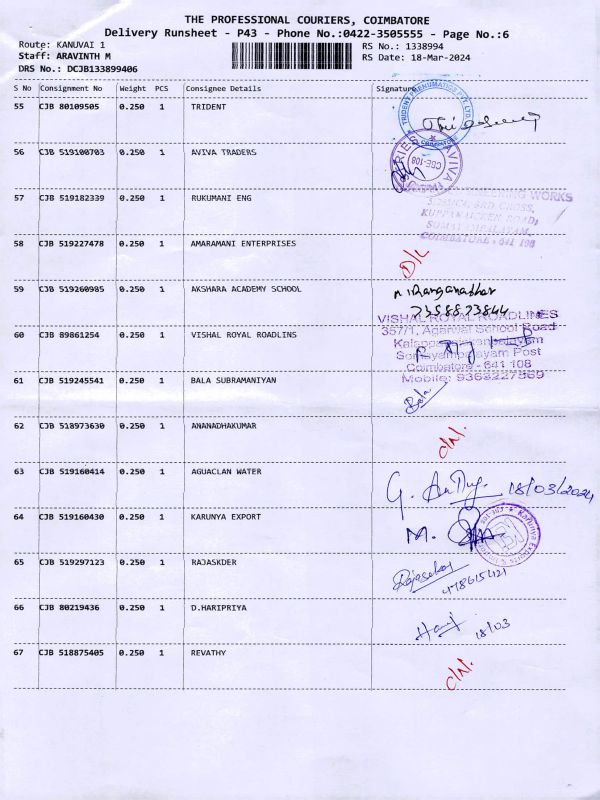 THE PROFESSIONAL COURIERS, COIMBATORE
Delivery Runsheet - P43 - Phone No.:0422-3505555 - Page No.:6
Route: KANUVAI 1
RS No.: 1338994
Staff: ARAVINTH M
RS Date: 18-Mar-2024
DRS No.: DCJB133899406
S No Consignment No Weight PCS Consignee Details Signature
55 CJB 80109505 0.250 1 TRIDENT
TRIDENT PNEUMATICS PVT. LTD.
COIMBATORE
56 CJB 519100703 0.250 1 AVIVA TRADERS
AVIVA
CBE-108
57 CJB 519182339 0.250 1 RUKUMANI ENG
WORKS
3RD CROSS,
ROAD,
COIMBATORE - 641 108
58 CJB 519227478 0.250 1 AMARAMANI ENTERPRISES
D/L
59 CJB 519260985 0.250 1 AKSHARA ACADEMY SCHOOL
60 CJB 89861254 0.250 1 VISHAL ROYAL ROADLINS
VISHAL ROYAL ROADLINES
357/1, Agarwal School Road
Somayampalayam Post
Coimbatore - 641 108
Mobile: 9363227569
61 CJB 519245541 0.250 1 BALA SUBRAMANIYAN
Bala
62 CJB 518973630 0.250 1 ANANADHAKUMAR
C/N.
63 CJB 519160414 0.250 1 AGUACLAN WATER
18/03/2024
64 CJB 519160430 0.250 1 KARUNYA EXPORT
M.
Karunya Exports
65 CJB 519297123 0.250 1 RAJASKDER
Rajasekar
66 CJB 80219436 0.250 1 D.HARIPRIYA
18/03
67 CJB 518875405 0.250 1 REVATHY
C/N.